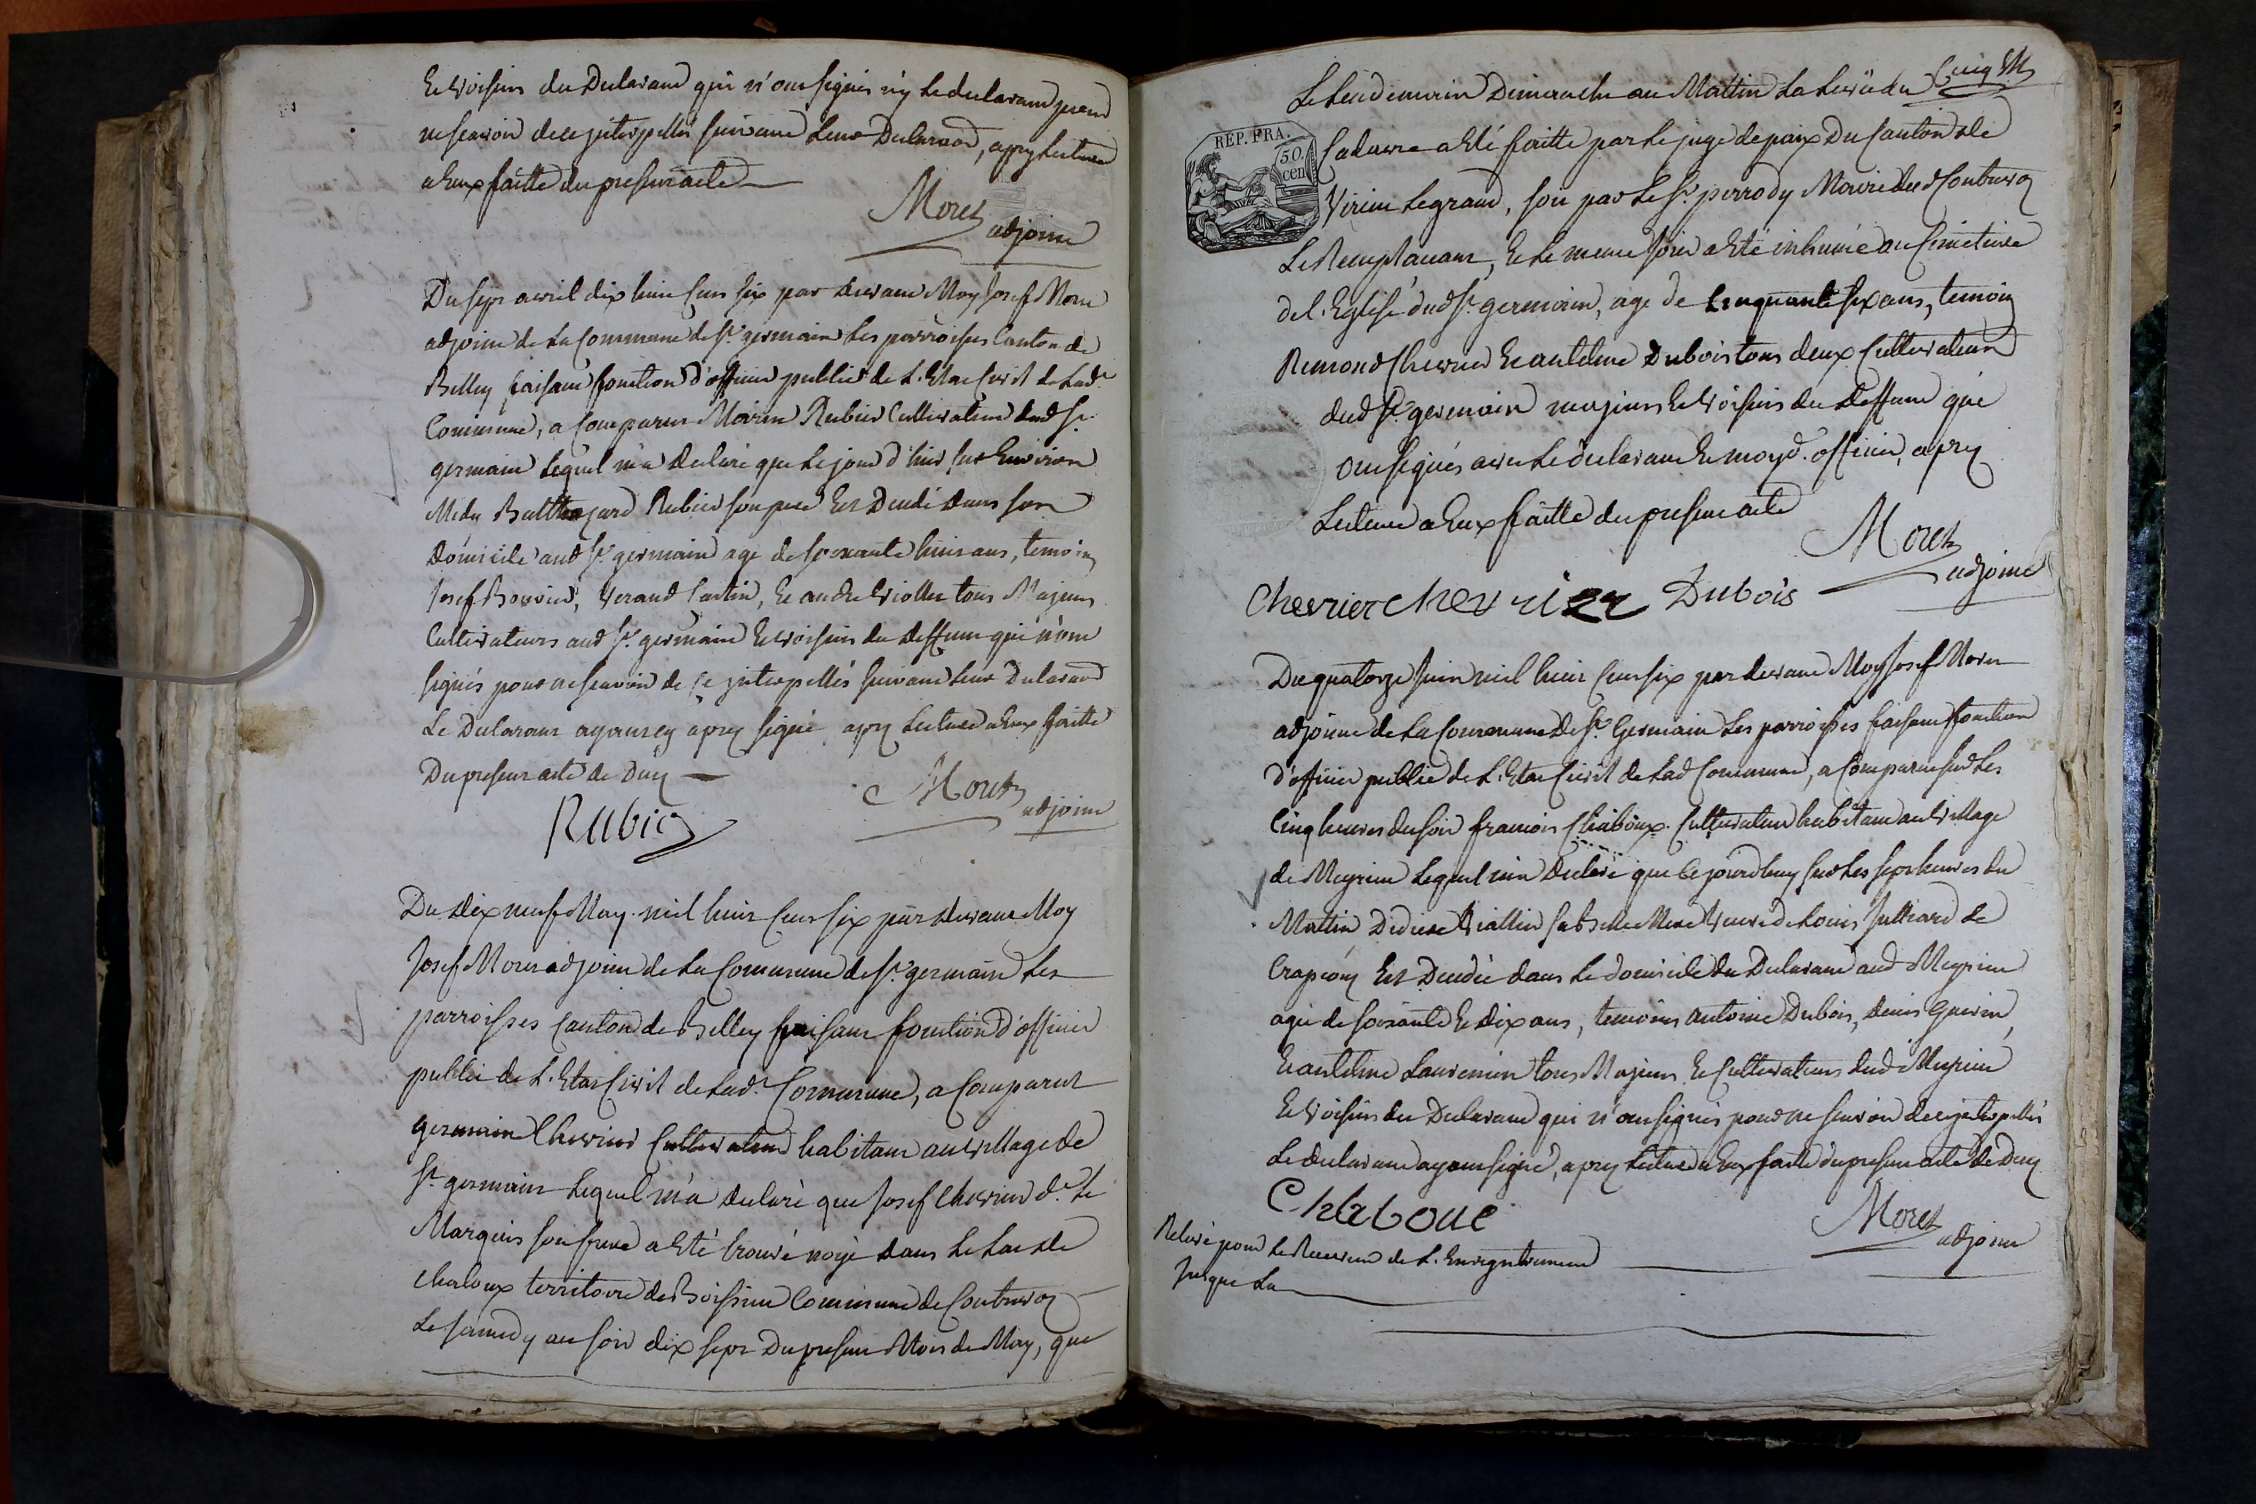 Et voisins du Declarant qui n'ont signés ny le declarant pour
ne scavoir de ce jnterpellés suivant leur Declaraon, apry lecture
a Eux faitte du present acte
Moret adjoint
Du sept avril dix huit Cent six par devant Moy Josef Moret
adjoint de La Commune de St germain Les parroisses Canton de
Belley faisant fonction d'officier public de L'Etat Civil de Lade
Commune, a Comparut Marin Rubier Cultivateur dud St
germain Lequel m'a declaré que Le jour d'hier sur Environ
Midy Balthazard Rubier son pere Est Decedé dans son
domicile aud St germain agé de soixante huit ans, temoins
Josef Bouvier, Verand Cartin, Et andre Viollet tous Majeurs
Cultivateurs aud St germain Et voisins du deffunt qui n'ont
signés pour ne scavoir de ce jnterpellés suivant leur Declaraon
Le Declarant ayant cy apry signé apry Lecture a Eux faitte
Du present acte de Deces
Rubier
Moret adjoint
Du dix neuf May mil huit Cent six par devant Moy
Josef Moret adjoint de La Commune de St germain Les
parroisses Canton de Belley faisant fonction d'officier
public de L'Etat Civil de Lade Commune, a Comparut
germain Chevrier Cultivateur habitant au village de
St germain Lequel m'a declaré que Josef Chevrier dt Le
Marquis son frere a Eté trouvé noyé dans Le Lac de
Chaloux territoire de Boissieu Commune de Contrevoz
Le samedy au soir dix sept Du present Mois de May, que
Cinq
Le Lendemain Dimanche au Mattin La Levée du
REP. FRA.
50 cen
Cadavre a Eté faitte par Le juge de paix Du Canton de
Virieu Le grand, sou par Le Sr perrody Maire dud Contrevoz
Le Remplacant, Et Le meme jour a Eté inhumé au Cimetiere
de L'Eglise dud St germain, agé de Cinquante six ans, temoins
Remond Chevrier Et antelme Dubois tous deux Cultivateurs
dud St germain majeurs Et voisins du Deffunt qui
ont signés avec Le declarant Et moyd. officier, apry
Lecture a Eux faitte du present acte
Moret adjoint
Chevrier chevrier Dubois
Du quatorze Juin mil huit Cent six par devant Moy Josef Moret
adjoint de La Commune De St Germain Les parroisses faisant fonction
d'officier public de L'Etat Civil de Lad Commune, a Comparut sur Les
Cinq heures du soir francois Chaboux Cultivateur habitant au village
de Meyrieu Lequel m'a Declaré que Ce jourdhuy sur Les sept heures du
Mattin Didiere Viallin sa Belle Mere Veuve de Louis Julliard de
Crapeou Est Decedée dans Le domicile du Declarant aud Meyrieu
agée de soixante Et dix ans, temoins antoine Dubois, denis Guerin,
Et antelme Laurencin tous Majeurs Et Cultivateurs dud Meyrieu
Et voisins du Declarant qui n'ont signés pour ne scavoir de ce jnterpellés
Le declarant ayant signé, apry Lecture a Eux faitte du present acte de Deces
Chaboue
Moret adjoint
Relevé pour Le Receveur de L'Enregistrement
Jusque La